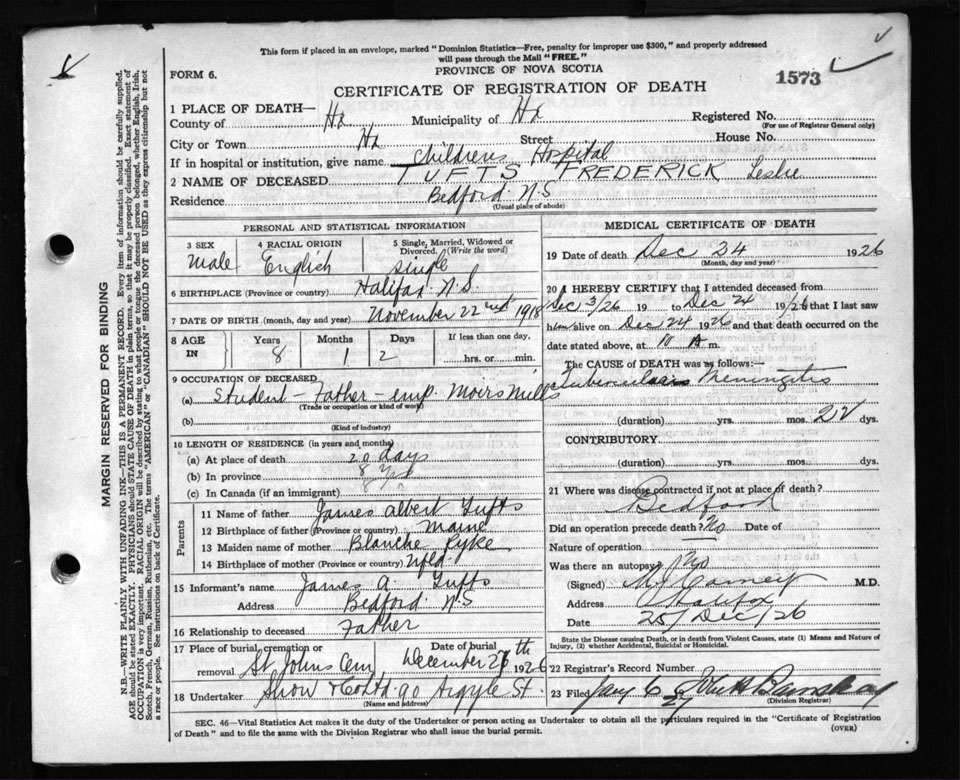 This form if placed in an envelope, marked "Dominion Statistics—Free, penalty for improper use $300," and properly addressed
will pass through the Mail "FREE."
PROVINCE OF NOVA SCOTIA
FORM 6.
1573
CERTIFICATE OF REGISTRATION OF DEATH
1 PLACE OF DEATH—
County of Hx Municipality of Hx Registered No.
(For use of Registrar General only)
City or Town Hx Street House No.
If in hospital or institution, give name Childrens Hospital
2 NAME OF DECEASED TUFTS FREDERICK Leslie
Residence Bedford N.S
(Usual place of abode)
PERSONAL AND STATISTICAL INFORMATION
3 SEX 4 RACIAL ORIGIN 5 Single, Married, Widowed or Divorced. (Write the word)
Male English Single
6 BIRTHPLACE (Province or country) Halifax N.S.
7 DATE OF BIRTH (month, day and year) November 22nd 1918
8 AGE IN Years Months Days If less than one day,
8 1 2 hrs. or min.
9 OCCUPATION OF DECEASED
(a) Student - Father - emp. Moirs Mills
(Trade or occupation or kind of work)
(b)
(Kind of industry)
10 LENGTH OF RESIDENCE (in years and months)
(a) At place of death 20 days
(b) In province 8 yrs
(c) In Canada (if an immigrant)
Parents
11 Name of father James Albert Tufts
12 Birthplace of father (Province or country) Maine
13 Maiden name of mother Blanche Pyke
14 Birthplace of mother (Province or country) Nfld.
15 Informant's name James A. Tufts
Address Bedford N.S
16 Relationship to deceased Father
17 Place of burial, cremation or removal Date of burial
St Johns Cem December 26th 1926
18 Undertaker Snow & Co Ltd. 90 Argyle St.
(Name and address)
MEDICAL CERTIFICATE OF DEATH
19 Date of death Dec 24 1926
(Month, day and year)
20 I HEREBY CERTIFY that I attended deceased from
Dec 3/26 19 to Dec 24 19/26 that I last saw
him alive on Dec 24 1926 and that death occurred on
date stated above, at 10 A m.
The CAUSE OF DEATH was as follows:—
Tubercular Meningitis
(duration) yrs. mos. 22 dys.
CONTRIBUTORY
(duration) yrs. mos. dys.
21 Where was disease contracted if not at place of death?
Bedford
Did an operation precede death? No Date of
Nature of operation
Was there an autopsy? No
(Signed) M.D.
Address Halifax
Date 25/Dec/26
State the Disease causing Death, or in death from Violent Causes, state (1) Means and Nature of
Injury, (2) whether Accidental, Suicidal or Homicidal.
22 Registrar's Record Number
23 Filed Jany 6 27
(Division Registrar)
SEC. 46—Vital Statistics Act makes it the duty of the Undertaker or person acting as Undertaker to obtain all the particulars required in the "Certificate of Registration
of Death" and to file the same with the Division Registrar who shall issue the burial permit.
(OVER)
MARGIN RESERVED FOR BINDING
N.B.—WRITE PLAINLY WITH UNFADING INK—THIS IS A PERMANENT RECORD. Every item of information should be carefully supplied.
AGE should be stated EXACTLY. PHYSICIANS should STATE CAUSE OF DEATH in plain terms, so that it may be properly classified. Exact statement of
OCCUPATION is very important. RACIAL ORIGIN will be described by stating to what people or tongue the deceased person belonged, whether English, Irish,
Scotch, French, German, Russian, Ruthenian, etc. The terms "AMERICAN" or "CANADIAN" SHOULD NOT BE USED as they express citizenship but not
a race or people. See instructions on back of Certificate.